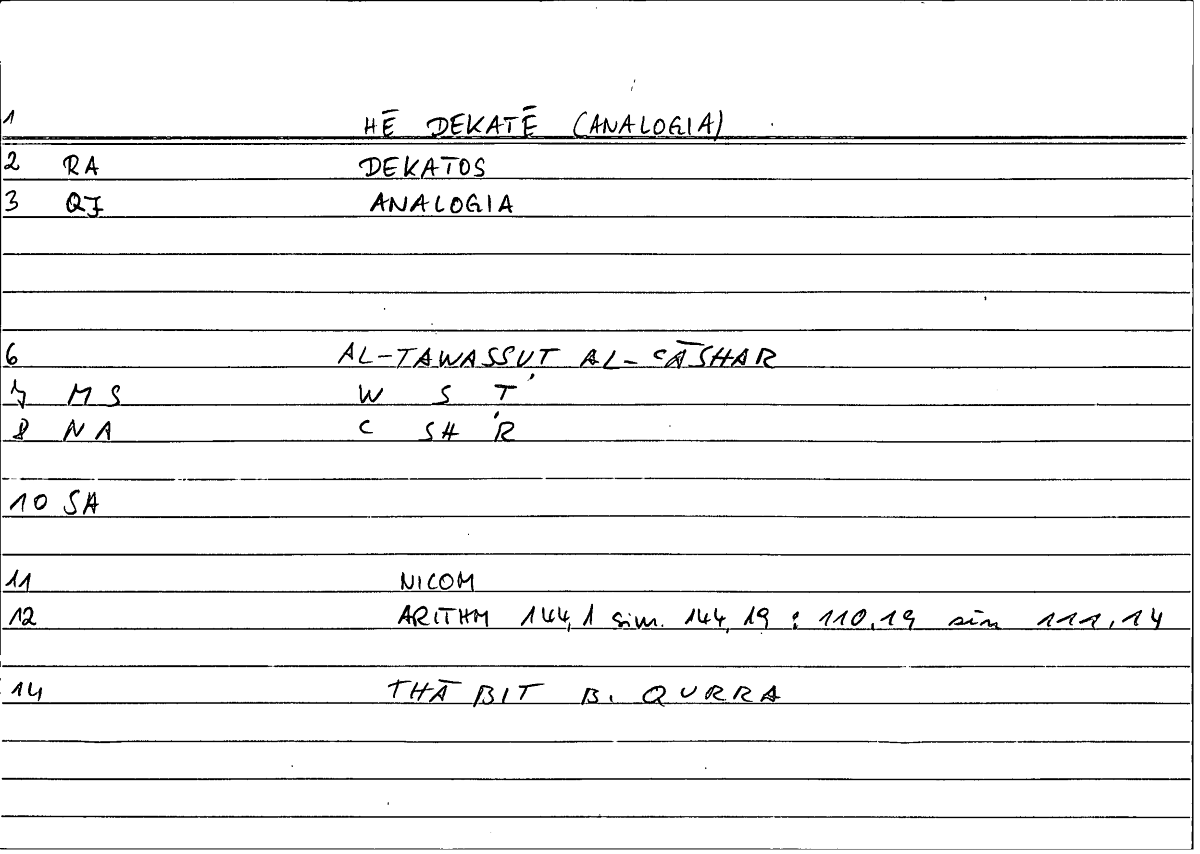 1 HĒ DEKATĒ (ANALOGIA)
2 RA DEKATOS
3 QJ ANALOGIA
6 AL-TAWASSUṬ AL-ᶜĀSHAR
7 M S W S Ṭ
8 N A ᶜ SH R
10 SA
11 NICOM
12 ARITHM 144,1 sim. 144,19 : 110,19 sim 111,14
14 THĀBIT B. QURRA